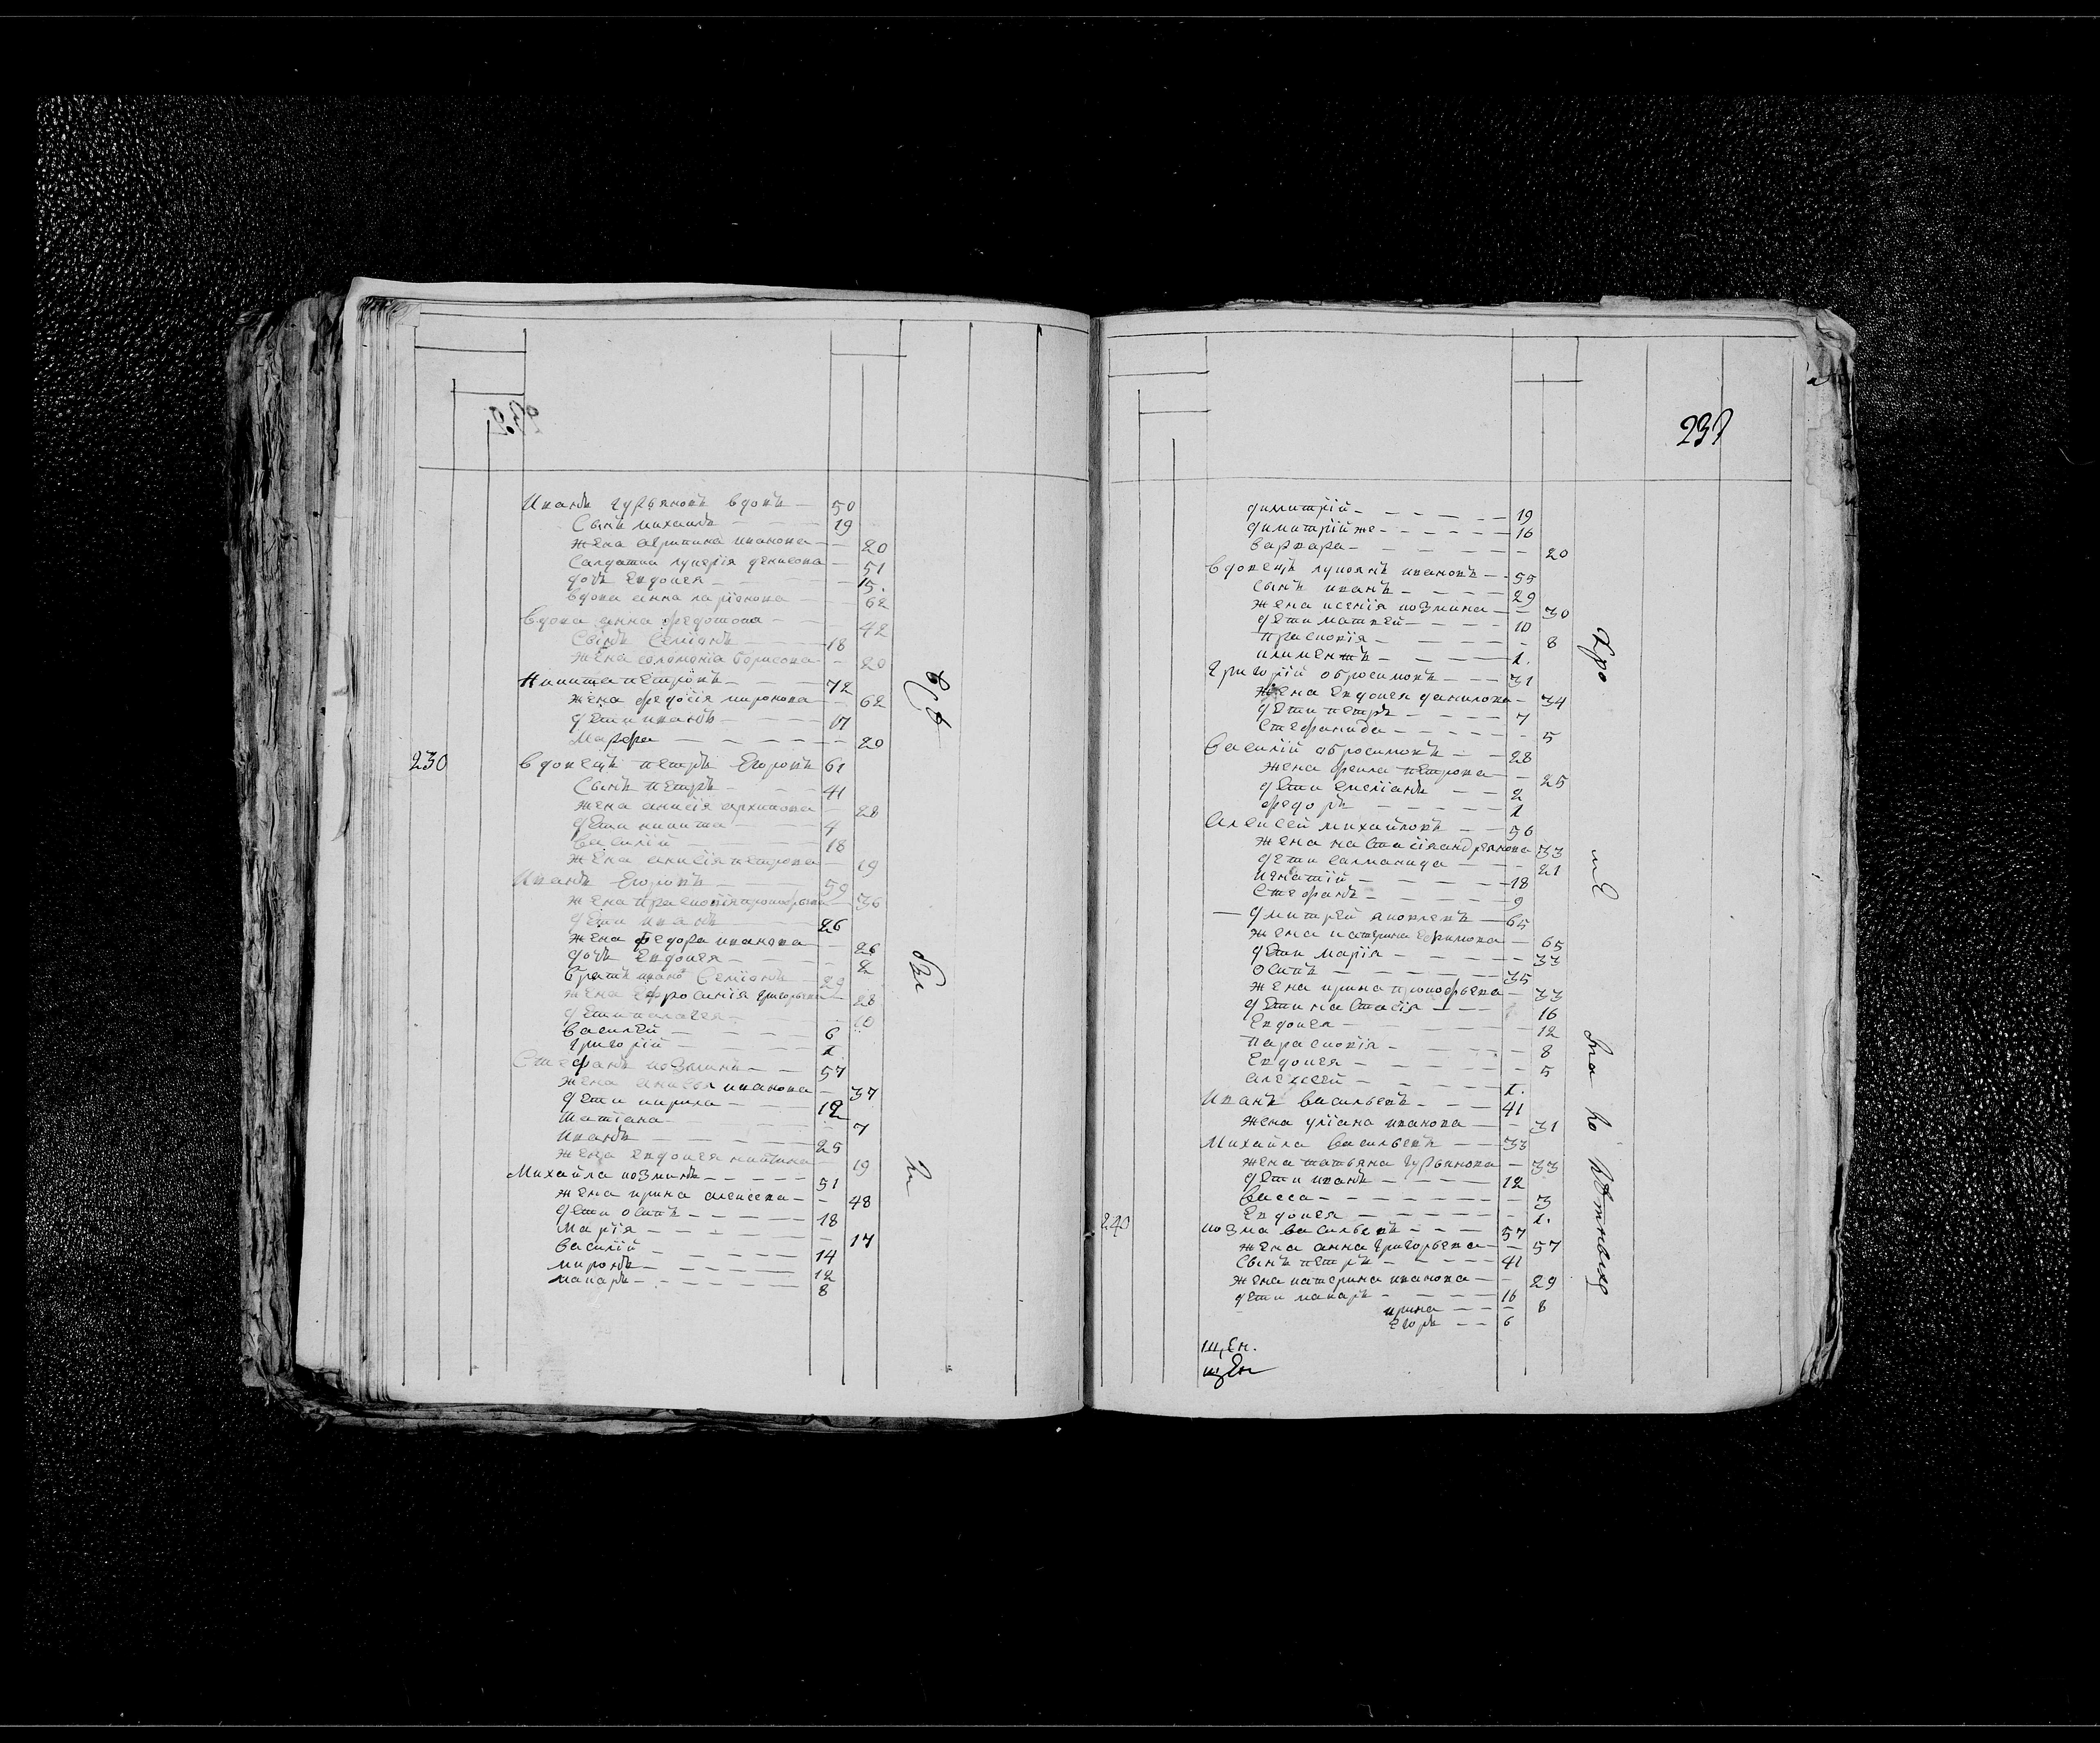 Иванъ гурьяновъ вдовъ — 50
Сынъ михаилъ — 19
жена агрипина иванова — 20
Салдатка лукерія денисова — 51
дочь Евдокея — 15.
вдова анна ларіонова — 62
вдова анна федотова — 42
Сынъ Семіонъ — 18
жена соломонія борисова — 20
Никита петровъ — 72
жена федосія миронова — 62
дети иванъ — 17
Марфа — 20
230 вдовецъ петръ Егоровъ 61
Сынъ петръ — 41
жена анисія архипова — 28
дети никита — 4
Василій — 18
жена анисія петрова — 19
Иванъ Егоровъ — 59
жена прасковія прокофьева — 36
дети иванъ — 26
жена федора иванова — 26
дочь Евдокея — 2
братъ Семіонъ — 29
жена Ефросинія григорьева — 28
дети палагея — 10
василей — 6
григорій — 1.
Стефанъ козминъ — 57
жена анисья иванова — 37
дети кирила — 12
татіана — 7
иванъ — 25
жена евдокея никитина — 19
Михайла козминъ — 51
жена ирина алексеева — 48
дети осипъ — 18
марія — 17
василій — 14
миронъ — 12
макаръ — 8
232
димитрій — 19
димитрій же — 16
варвара — 20
вдовецъ лукоянъ ивановъ — 55
сынъ иванъ — 29
жена ксенія козмина — 30
дети матвей — 10
прасковія — 8
климентъ — 1.
григорій обросимовъ — 31
жена Евдокея данилова — 34
дети петръ — 7
Стефанида — 5
василій обросимовъ — 28
жена фекла петрова — 25
дети емеліанъ — 2
федоръ — 1
Алексей михайловъ — 56
жена настасія андреянова 33
дети салманида — 21
игнатій — 18
Стефанъ — 9
— дмитрей яковлевъ — 65
жена катерина ефимова — 65
дети марія — 33
осипъ — 35
жена ирина прокофьева — 33
дети настасія — 16
Евдокея — 12
парасковія — 8
Евдокея — 5
алексей — 1.
Иванъ васильевъ — 41
жена уліана иванова — 31
Михайла васильевъ — 33
жена татьяна гурьянова — 33
дети иванъ — 12
васса — 3
Евдокея — 1.
240 козма васильевъ — 57
жена анна григорьева — 57
Сынъ петръ — 41
жена катерина иванова — 29
дети макаръ — 16
ирина — 8
егоръ — 6